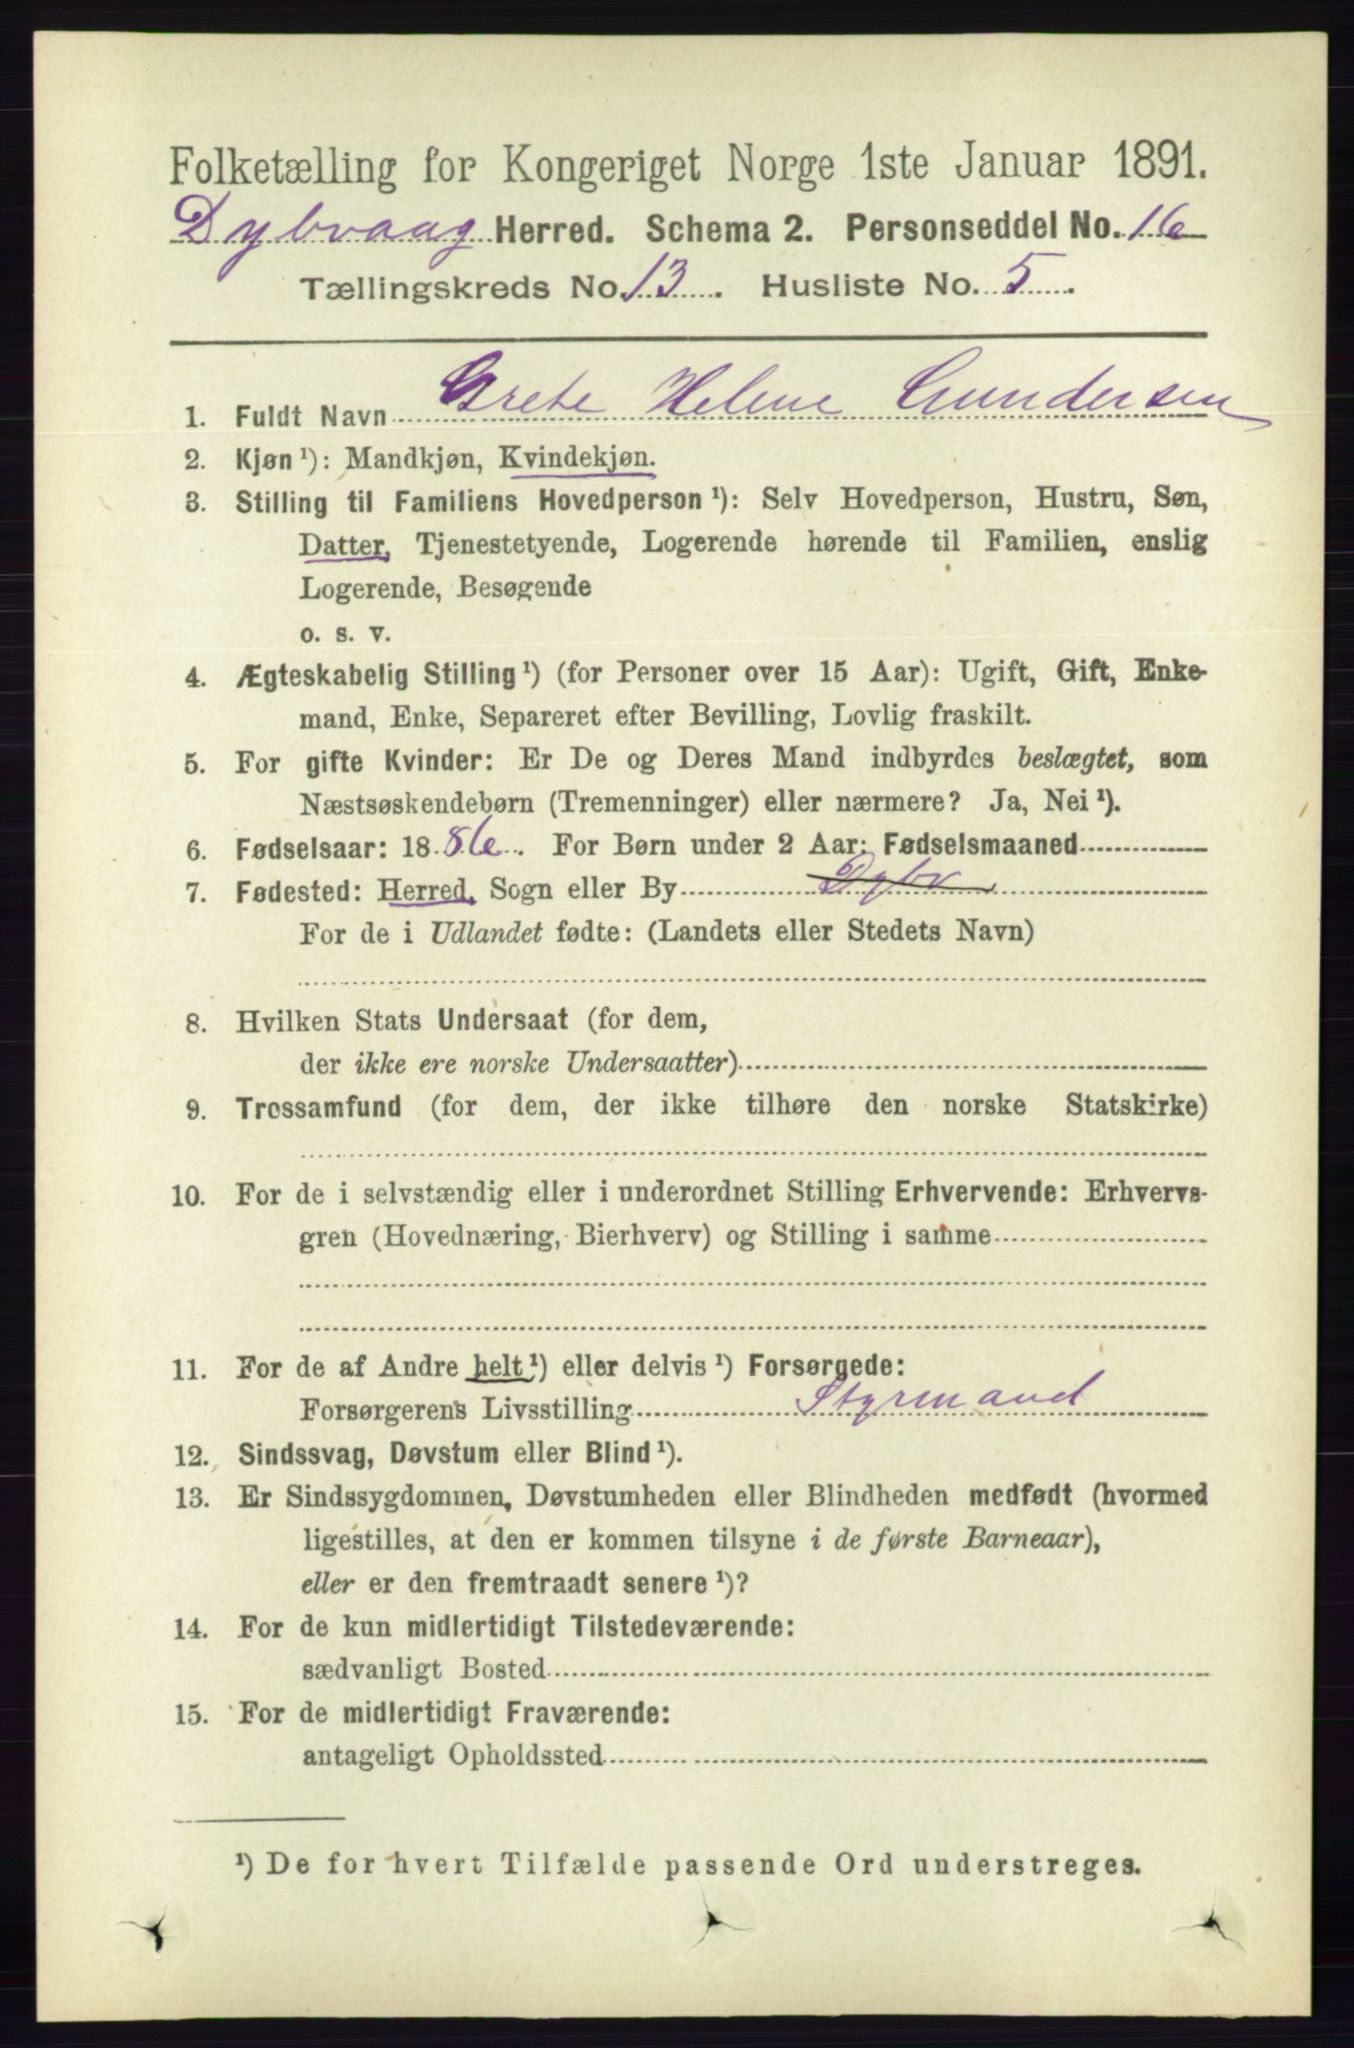 Folketælling for Kongeriget Norge 1ste Januar 1891.
Dybvaag Herred. Schema 2. Personseddel No. 16
Tællingskreds No. 13. Husliste No. 5.
1. Fuldt Navn Grete Helene Gundersen
2. Kjøn ¹): Mandkjøn, Kvindekjøn.
3. Stilling til Familiens Hovedperson ¹): Selv Hovedperson, Hustru, Søn,
Datter, Tjenestetyende, Logerende hørende til Familien, enslig
Logerende, Besøgende
o. s. v.
4. Ægteskabelig Stilling ¹) (for Personer over 15 Aar): Ugift, Gift, Enke-
mand, Enke, Separeret efter Bevilling, Lovlig fraskilt.
5. For gifte Kvinder: Er De og Deres Mand indbyrdes beslægtet, som
Næstsøskendebørn (Tremenninger) eller nærmere? Ja, Nei ¹).
6. Fødselsaar: 1886. For Børn under 2 Aar: Fødselsmaaned
7. Fødested: Herred, Sogn eller By Dybv
For de i Udlandet fødte: (Landets eller Stedets Navn)
8. Hvilken Stats Undersaat (for dem,
der ikke ere norske Undersaatter)
9. Trossamfund (for dem, der ikke tilhøre den norske Statskirke)
10. For de i selvstændig eller i underordnet Stilling Erhvervende: Erhvervs-
gren (Hovednæring, Bierhverv) og Stilling i samme
11. For de af Andre helt ¹) eller delvis ¹) Forsørgede:
Forsørgerens Livsstilling Styrmand
12. Sindssvag, Døvstum eller Blind ¹).
13. Er Sindssygdommen, Døvstumheden eller Blindheden medfødt (hvormed
ligestilles, at den er kommen tilsyne i de første Barneaar),
eller er den fremtraadt senere ¹)?
14. For de kun midlertidigt Tilstedeværende:
sædvanligt Bosted
15. For de midlertidigt Fraværende:
antageligt Opholdssted
¹) De for hvert Tilfælde passende Ord understreges.